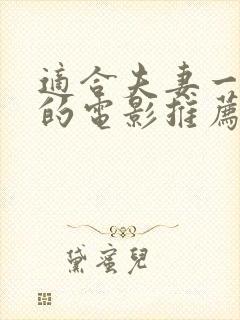 適合夫妻一
的電影推薦
黛蜜兒